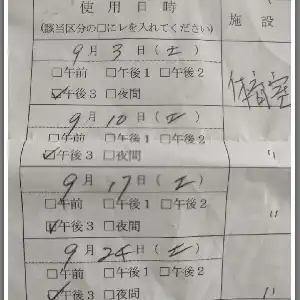 使用日時
施設
(該当区分の□にレを入れてください)
9月3日(土)
□午前 □午後1 □午後2
☑午後3 □夜間
体育室
9月10日(土)
□午前 □午後1 □午後2
☑午後3 □夜間
〃
9月17日(土)
□午前 □午後1 □午後2
☑午後3 □夜間
〃
9月24日(土)
□午前 □午後1 □午後2
☑午後3 □夜間
〃